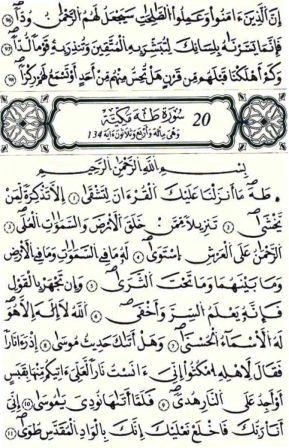 إِنَّ ٱلَّذِينَ ءَامَنُوا۟ وَعَمِلُوا۟ ٱلصَّٰلِحَٰتِ سَيَجْعَلُ لَهُمُ ٱلرَّحْمَٰنُ وُدًّا ٩٦
فَإِنَّمَا يَسَّرْنَٰهُ بِلِسَانِكَ لِتُبَشِّرَ بِهِ ٱلْمُتَّقِينَ وَتُنذِرَ بِهِ قَوْمًا لُّدًّا ٩٧
وَكَمْ أَهْلَكْنَا قَبْلَهُم مِّن قَرْنٍ هَلْ تُحِسُّ مِنْهُم مِّنْ أَحَدٍ أَوْ تَسْمَعُ لَهُمْ رِكْزًا ٩٨
20 سُورَة طَهَ مَكِّيَّة
وَهْيَ مِائَة وَأَرْبَع وَثَلَاثُونَ ءَايَة 134
بِسْمِ ٱللَّهِ ٱلرَّحْمَٰنِ ٱلرَّحِيمِ
طَهَ مَا أَنزَلْنَا عَلَيْكَ ٱلْقُرْءَانَ لِتَشْقَىٰ ١ إِلَّا تَذْكِرَةً لِّمَنْ
يَّخْشَىٰ ٢ تَنزِيلًا مِّمَّنْ خَلَقَ ٱلْأَرْضَ وَٱلسَّمَٰوَٰتِ ٱلْعُلَى ٣
ٱلرَّحْمَٰنُ عَلَى ٱلْعَرْشِ ٱسْتَوَىٰ ٤ لَهُ مَا فِى ٱلسَّمَٰوَٰتِ وَمَا فِى ٱلْأَرْضِ
وَمَا بَيْنَهُمَا وَمَا تَحْتَ ٱلثَّرَىٰ ٥ وَإِن تَجْهَرْ بِٱلْقَوْلِ
فَإِنَّهُ يَعْلَمُ ٱلسِّرَّ وَأَخْفَى ٦ ٱللَّهُ لَا إِلَٰهَ إِلَّا هُوَ
لَهُ ٱلْأَسْمَاءُ ٱلْحُسْنَىٰ ٧ وَهَلْ أَتَىٰكَ حَدِيثُ مُوسَىٰ ٨ إِذْ رَءَا نَارًا
فَقَالَ لِأَهْلِهِ ٱمْكُثُوا۟ إِنِّى ءَانَسْتُ نَارًا لَّعَلِّى ءَاتِيكُم مِّنْهَا بِقَبَسٍ
أَوْ أَجِدُ عَلَى ٱلنَّارِ هُدًى ٩ فَلَمَّا أَتَىٰهَا نُودِىَ يَٰمُوسَىٰ ١٠ إِنِّى
أَنَا رَبُّكَ فَٱخْلَعْ نَعْلَيْكَ إِنَّكَ بِٱلْوَادِ ٱلْمُقَدَّسِ طُوَى ١١